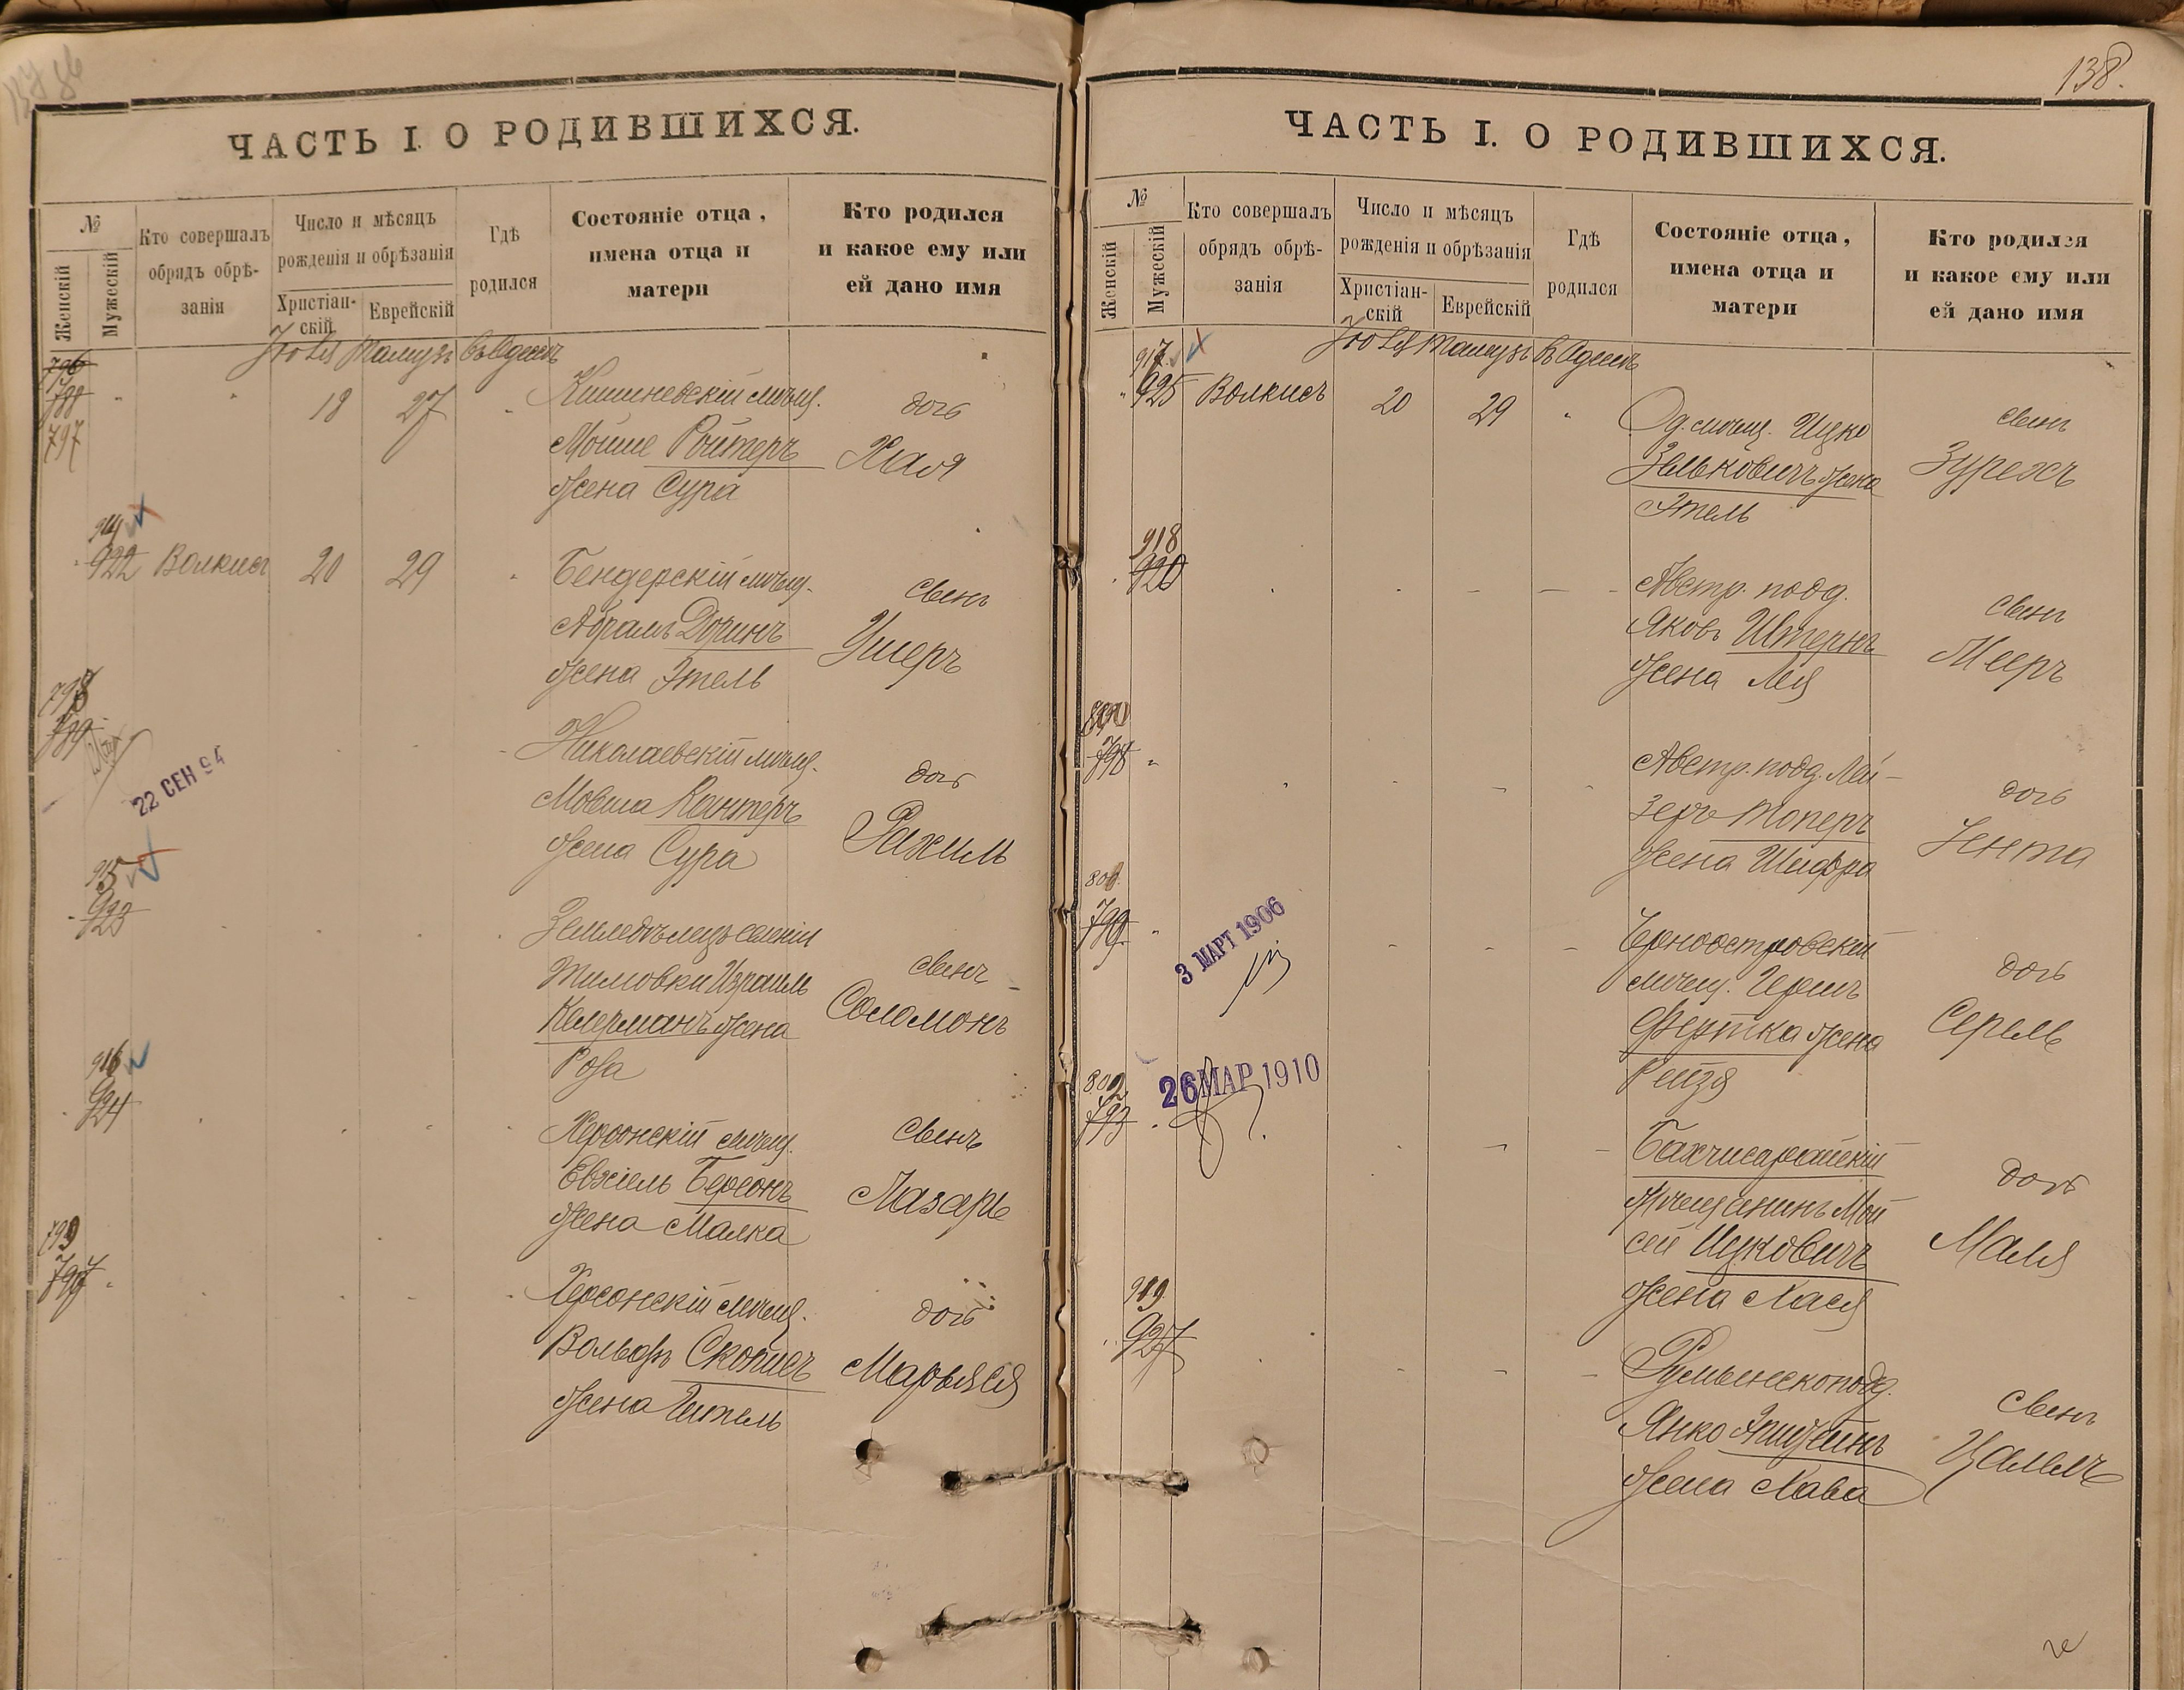 ЧАСТЬ I. О РОДИВШИХСЯ.
№
Женскій
Мужескій
Кто совершалъ
обрядъ обрѣ-
занія
Число и мѣсяцъ
рожденія и обрѣзанія
Христіан-
скій
Еврейскій
Гдѣ
родился
Состояніе отца,
имена отца и
матери
Кто родился
и какое ему или
ей дано имя
Іюля Тамузъ Въ Одессѣ
796
788
797
18 27
Кишиневскій мѣщ.
Мойше Ройтеръ
жена Сура
дочь
Хая
914
922 Волкисъ 20 29
Бендерскій мѣщ.
Абрамъ Доринъ
жена Этель
сынъ
Ушеръ
798
789
22 СЕН 94
Николаевскій мѣщ.
Мовша Кантеръ
жена Сура
дочь
Рахиль
915
923
Земледѣлецъ селенія
Израиль
Келерманъ жена
Роза
сынъ
Соломонъ
916
924
Херсонскій мѣщ.
Евзіель Берсонъ
жена Малка
сынъ
Лазарь
799
797
Херсонскій мѣщ.
Вольфъ Скописъ
жена Гитель
дочь
Марьяся
138.
ЧАСТЬ I. О РОДИВШИХСЯ.
№
Женскій
Мужескій
Кто совершалъ
обрядъ обрѣ-
занія
Число и мѣсяцъ
рожденія и обрѣзанія
Христіан-
скій
Еврейскій
Гдѣ
родился
Состояніе отца,
имена отца и
матери
Кто родился
и какое ему или
ей дано имя
Іюля Тамузъ Въ Одессѣ
917
925 Волкисъ 20 29
Од. мѣщ. Ицко
Зельковичъ жена
Этель
сынъ
Зурехъ
918
926
Австр. подд.
Яковъ Штернъ
жена Лея
сынъ
Мееръ
800
798
Австр. подд. Лей-
зеръ Топеръ
жена Шифра
дочь
Іента
801
799
3 МАРТ 1906
Черноостровскій
мѣщ. Гершъ
Фертка жена
Рейзя
дочь
Серель
802
793
26 МАР 1910
Бахчисарайскій
мѣщанинъ Мой
сей Ицковичъ
жена Хася
дочь
Маля
919
927
Румынскоподд.
Янко
жена Хава
сынъ
Цалель